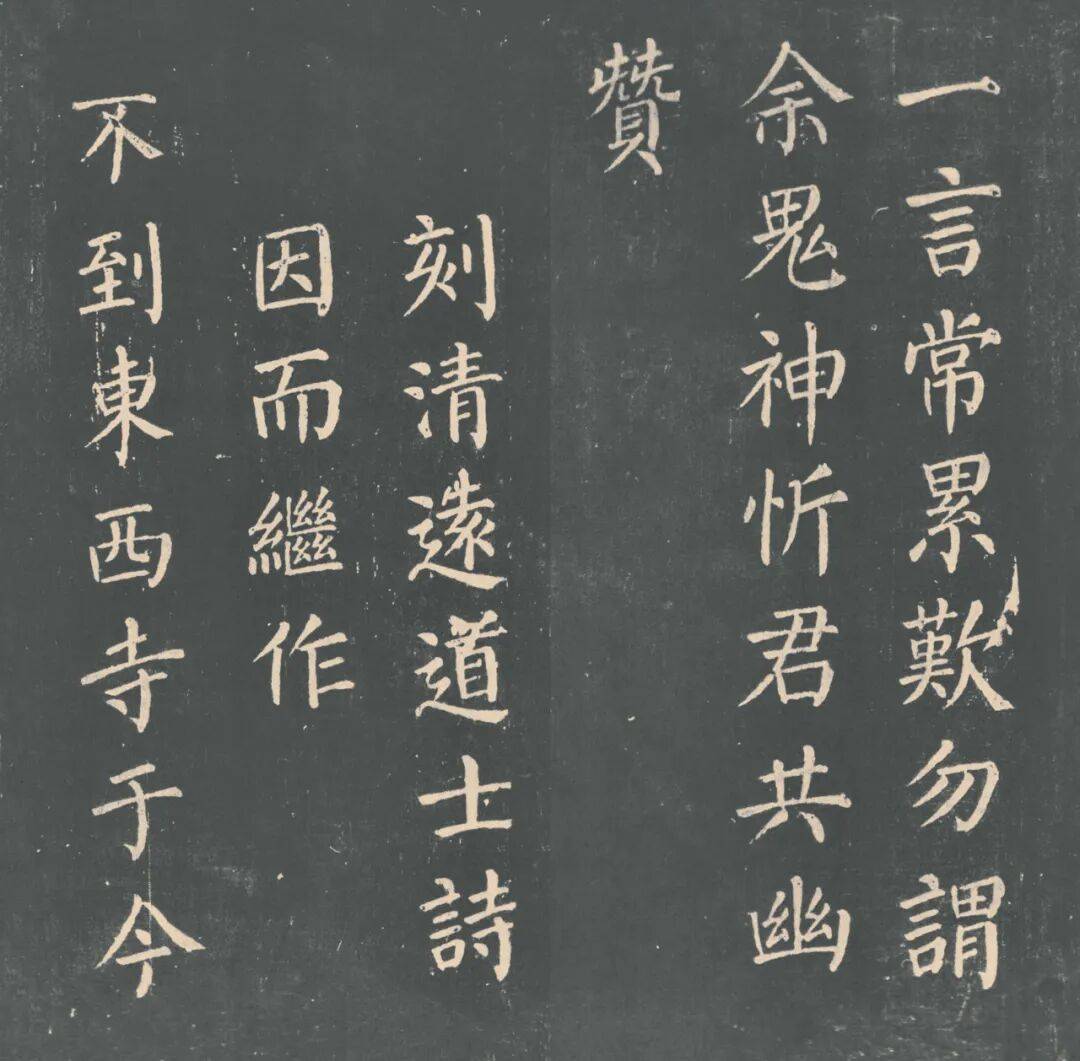 一言常累歎勿謂
余鬼神忻君共幽
贊
刻清遠道士詩
因而繼作
不到東西寺于今